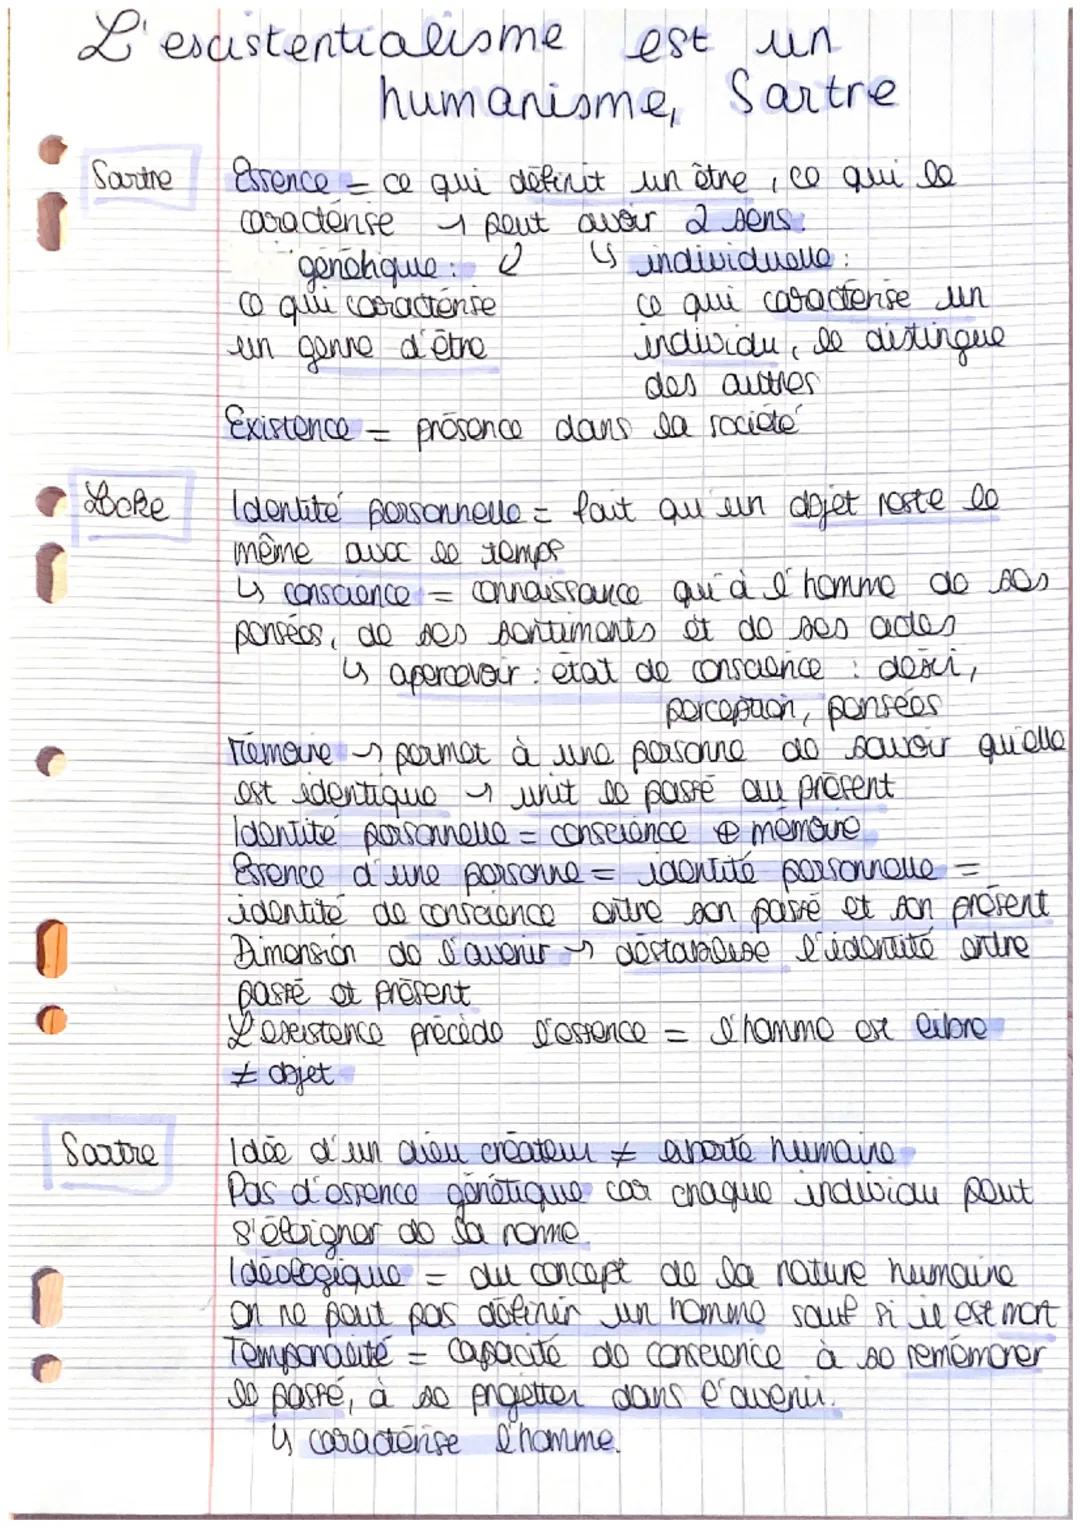 L'existentialisme est un
humanisme, Sartre
Sartre
Essence = ce qui définit un être, ce qui le
caractérise → peut avoir 2 sens:
génétique: ↙ ↳ individuelle:
ce qui caractérise ce qui caractérise un
un genre d'être individu, le distingue
des autres
Existence = présence dans la société
Locke
Identité personnelle = fait qu'un objet reste le
même avec le temps
↳ conscience = connaissance qu'à l'homme de ses
pensées, de ses sentiments et de ses actes
↳ apercevoir : état de conscience : désir,
perception, pensées
Mémoire → permet à une personne de savoir qu'elle
est identique → unit le passé au présent
Identité personnelle = conscience ⊕ mémoire
Essence d'une personne = identité personnelle =
identité de conscience entre son passé et son présent
Dimension de l'avenir → déstabilise l'identité entre
passé et présent
L'existence précède l'essence = l'homme est libre
≠ objet
Sartre
Idée d'un dieu créateur ≠ liberté humaine
Pas d'essence génétique car chaque individu peut
s'éloigner de la norme.
Idéologique = du concept de la nature humaine
On ne peut pas définir un homme sauf si il est mort
Temporalité = capacité de conscience à se remémorer
le passé, à se projetter dans l'avenir.
↳ caractérise l'homme.